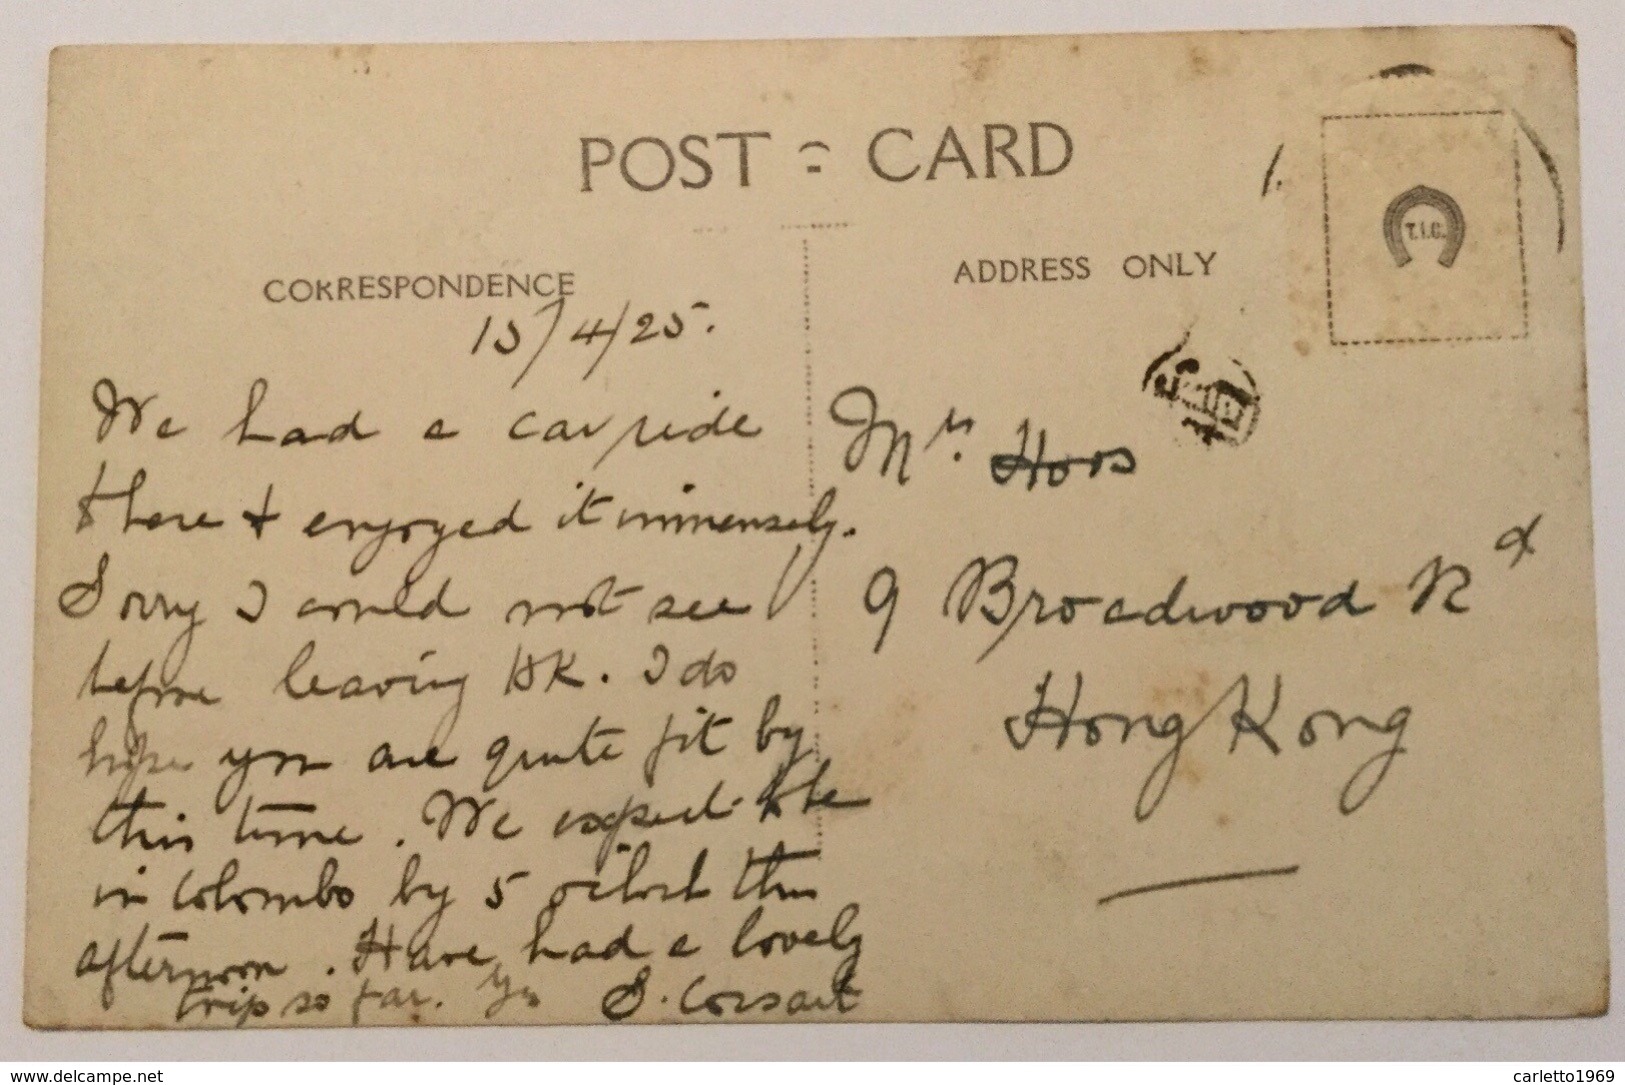 POST CARD
CORRESPONDENCE
ADDRESS ONLY
T.I.C.
15/4/25.
We had a car ride
there & enjoyed it immensely.
Sorry I could not see
before leaving HK. I do
hope you are quite fit by
this time. We expect to be
in Colombo by 5 o'clock this
afternoon. Have had a lovely
trip so far. Yrs S.
Mrs.
9 Broadwood Rd
Hong Kong
www.delcampe.net
carletto1969